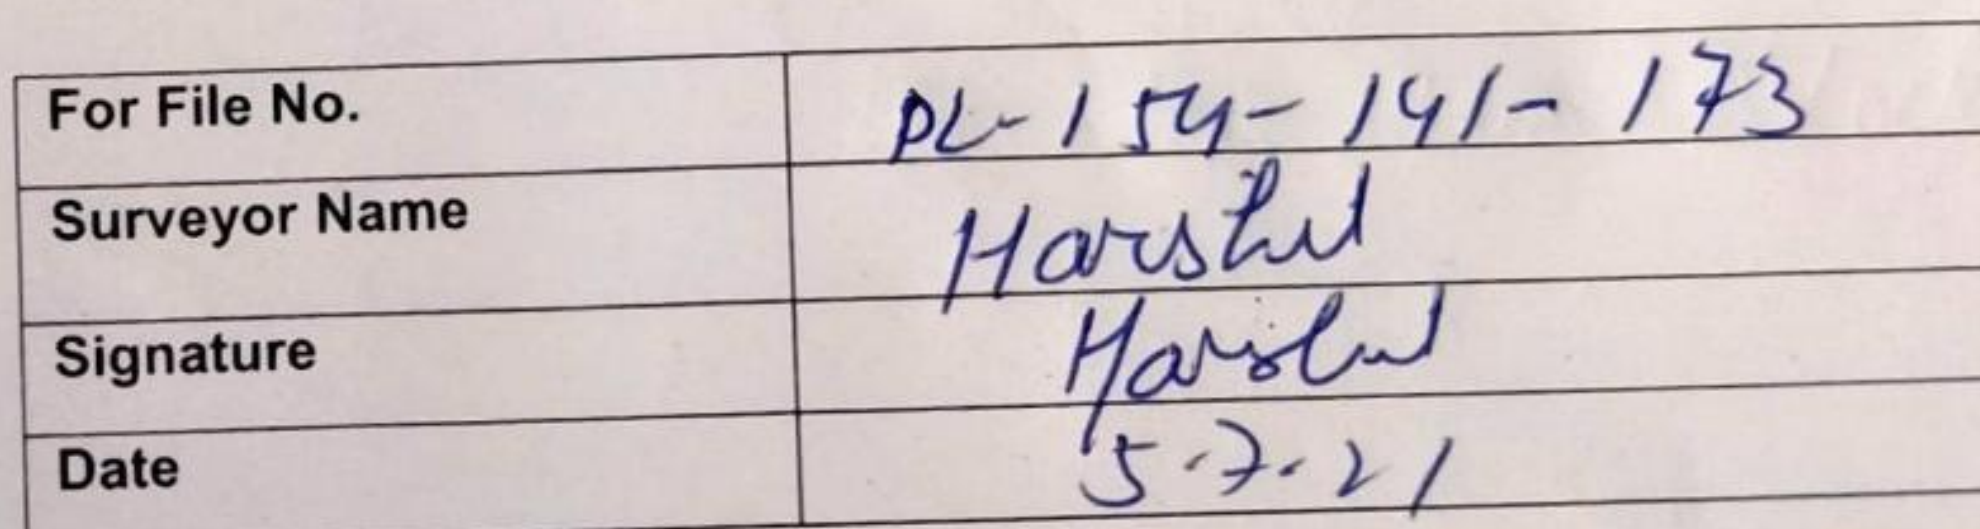 For File No. PL-154-141-173
Surveyor Name Harshit
Signature Harshit
Date 5.7.21